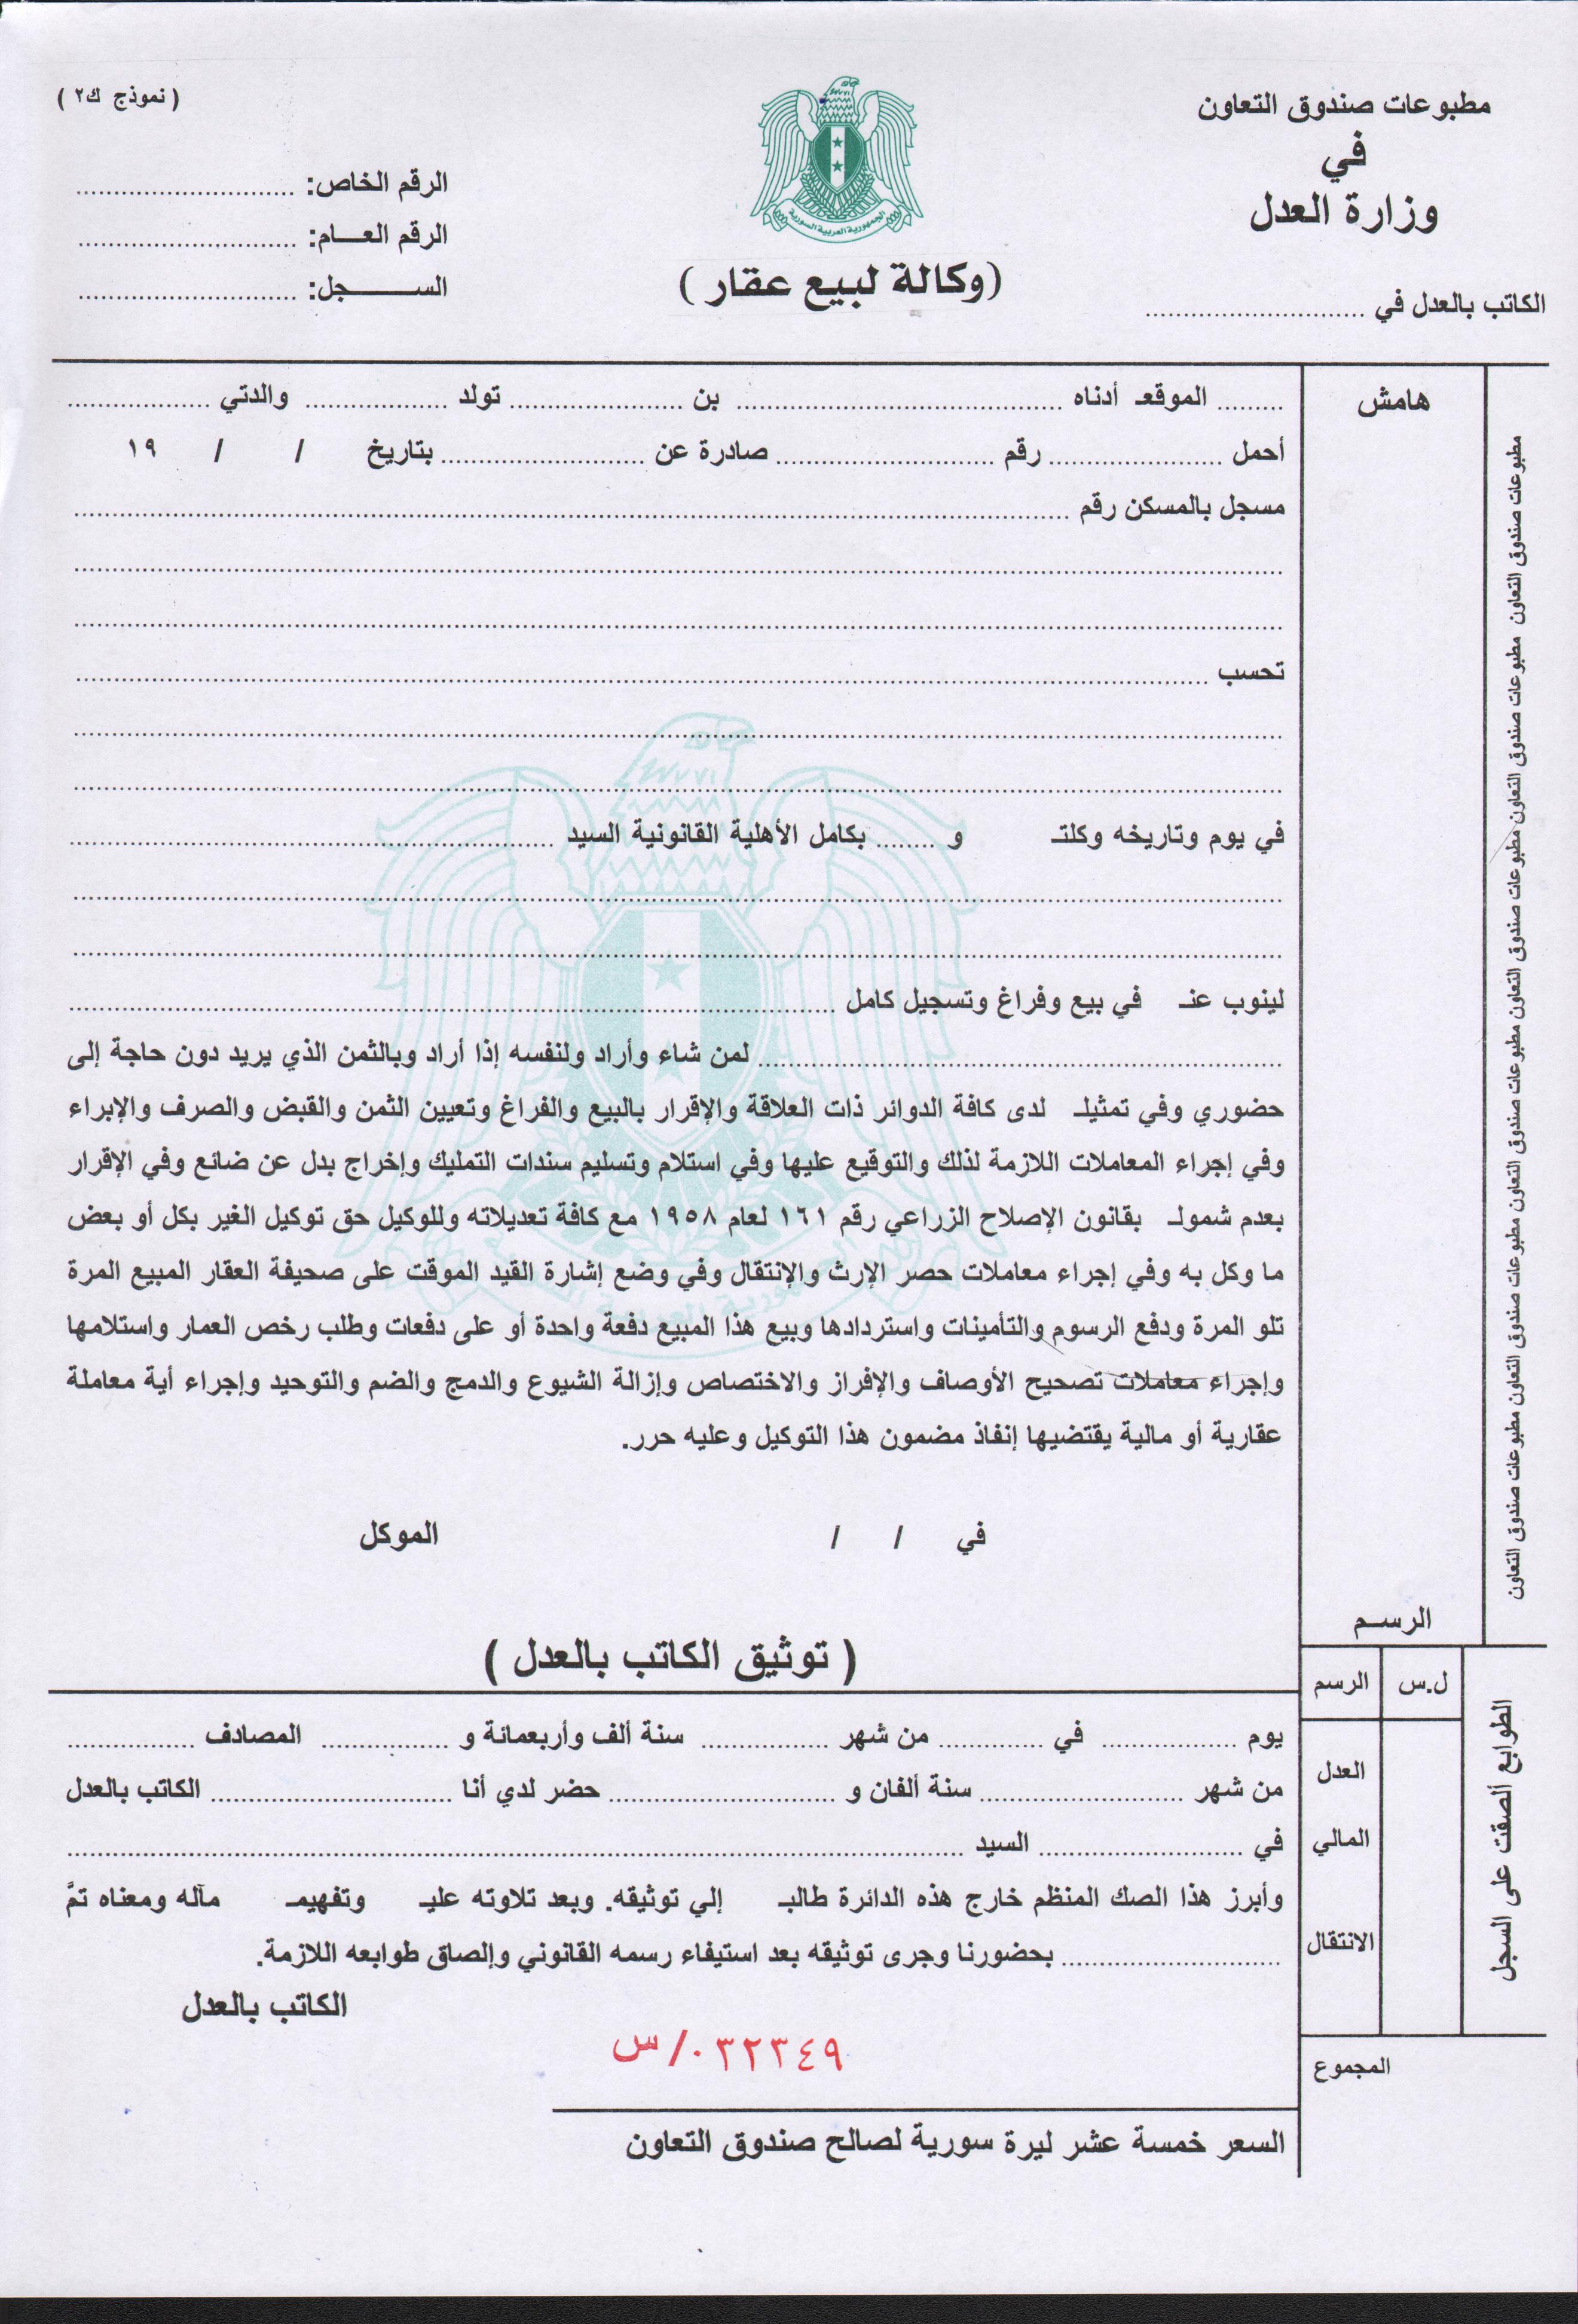 مطبوعات صندوق التعاون
في
وزارة العدل
الكاتب بالعدل في ..............................
الجمهورية العربية السورية
(وكالة لبيع عقار )
( نموذج ك٢ )
الرقم الخاص: ..............................
الرقم العـــام: ..............................
الســـــــــجل: ..............................
هامش
......... الموقعـ أدناه .............................. بن .................... تولد .................... والدتي ....................
أحمل .................... رقم .................... صادرة عن .................... بتاريخ / / ١٩
مسجل بالمسكن رقم ..............................
..............................
..............................
تحسب ..............................
..............................
..............................
في يوم وتاريخه وكلتـ و ........ بكامل الأهلية القانونية السيد ..............................
..............................
..............................
لينوب عنـ في بيع وفراغ وتسجيل كامل ..............................
.............................. لمن شاء وأراد ولنفسه إذا أراد وبالثمن الذي يريد دون حاجة إلى
حضوري وفي تمثيلـ لدى كافة الدوائر ذات العلاقة والإقرار بالبيع والفراغ وتعيين الثمن والقبض والصرف والإبراء
وفي إجراء المعاملات اللازمة لذلك والتوقيع عليها وفي استلام وتسليم سندات التمليك وإخراج بدل عن ضائع وفي الإقرار
بعدم شمولـ بقانون الإصلاح الزراعي رقم ١٦١ لعام ١٩٥٨ مع كافة تعديلاته وللوكيل حق توكيل الغير بكل أو بعض
ما وكل به وفي إجراء معاملات حصر الإرث والإنتقال وفي وضع إشارة القيد الموقت على صحيفة العقار المبيع المرة
تلو المرة ودفع الرسوم والتأمينات واستردادها وبيع هذا المبيع دفعة واحدة أو على دفعات وطلب رخص العمار واستلامها
وإجراء معاملات تصحيح الأوصاف والإفراز والاختصاص وإزالة الشيوع والدمج والضم والتوحيد وإجراء أية معاملة
عقارية أو مالية يقتضيها إنفاذ مضمون هذا التوكيل وعليه حرر.
في / / الموكل
مطبوعات صندوق التعاون مطبوعات صندوق التعاون مطبوعات صندوق التعاون مطبوعات صندوق التعاون مطبوعات صندوق التعاون مطبوعات صندوق التعاون
الرســم
ل.س الرسم
العدل
المالي
الانتقال
الطوابع ألصقت على السجل
المجموع
( توثيق الكاتب بالعدل )
يوم .................. في .............. من شهر ................. سنة ألف وأربعمائة و ................. المصادف .................
من شهر ........................... سنة ألفان و .............................. حضر لدي أنا .............................. الكاتب بالعدل
في ........................... السيد ..............................
وأبرز هذا الصك المنظم خارج هذه الدائرة طالبـ إلي توثيقه. وبعد تلاوته عليـ وتفهيمـ مآله ومعناه تمَّ
............................. بحضورنا وجرى توثيقه بعد استيفاء رسمه القانوني وإلصاق طوابعه اللازمة.
الكاتب بالعدل
٠٣٢٣٤٩/س
السعر خمسة عشر ليرة سورية لصالح صندوق التعاون